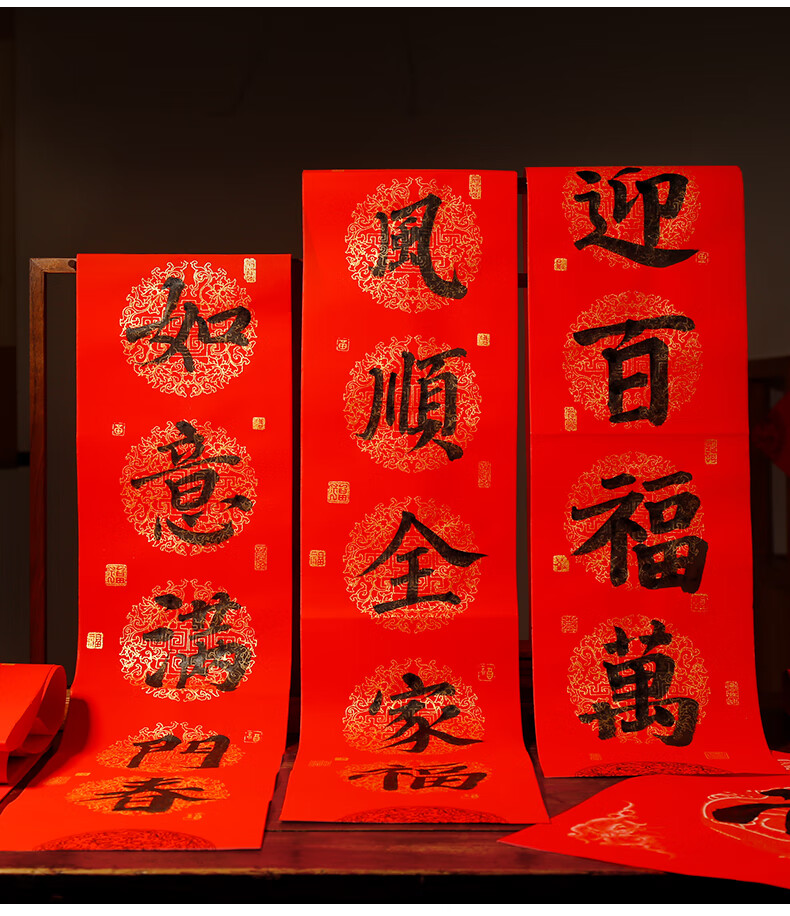 迎百福萬
風順全家福
如意滿門春